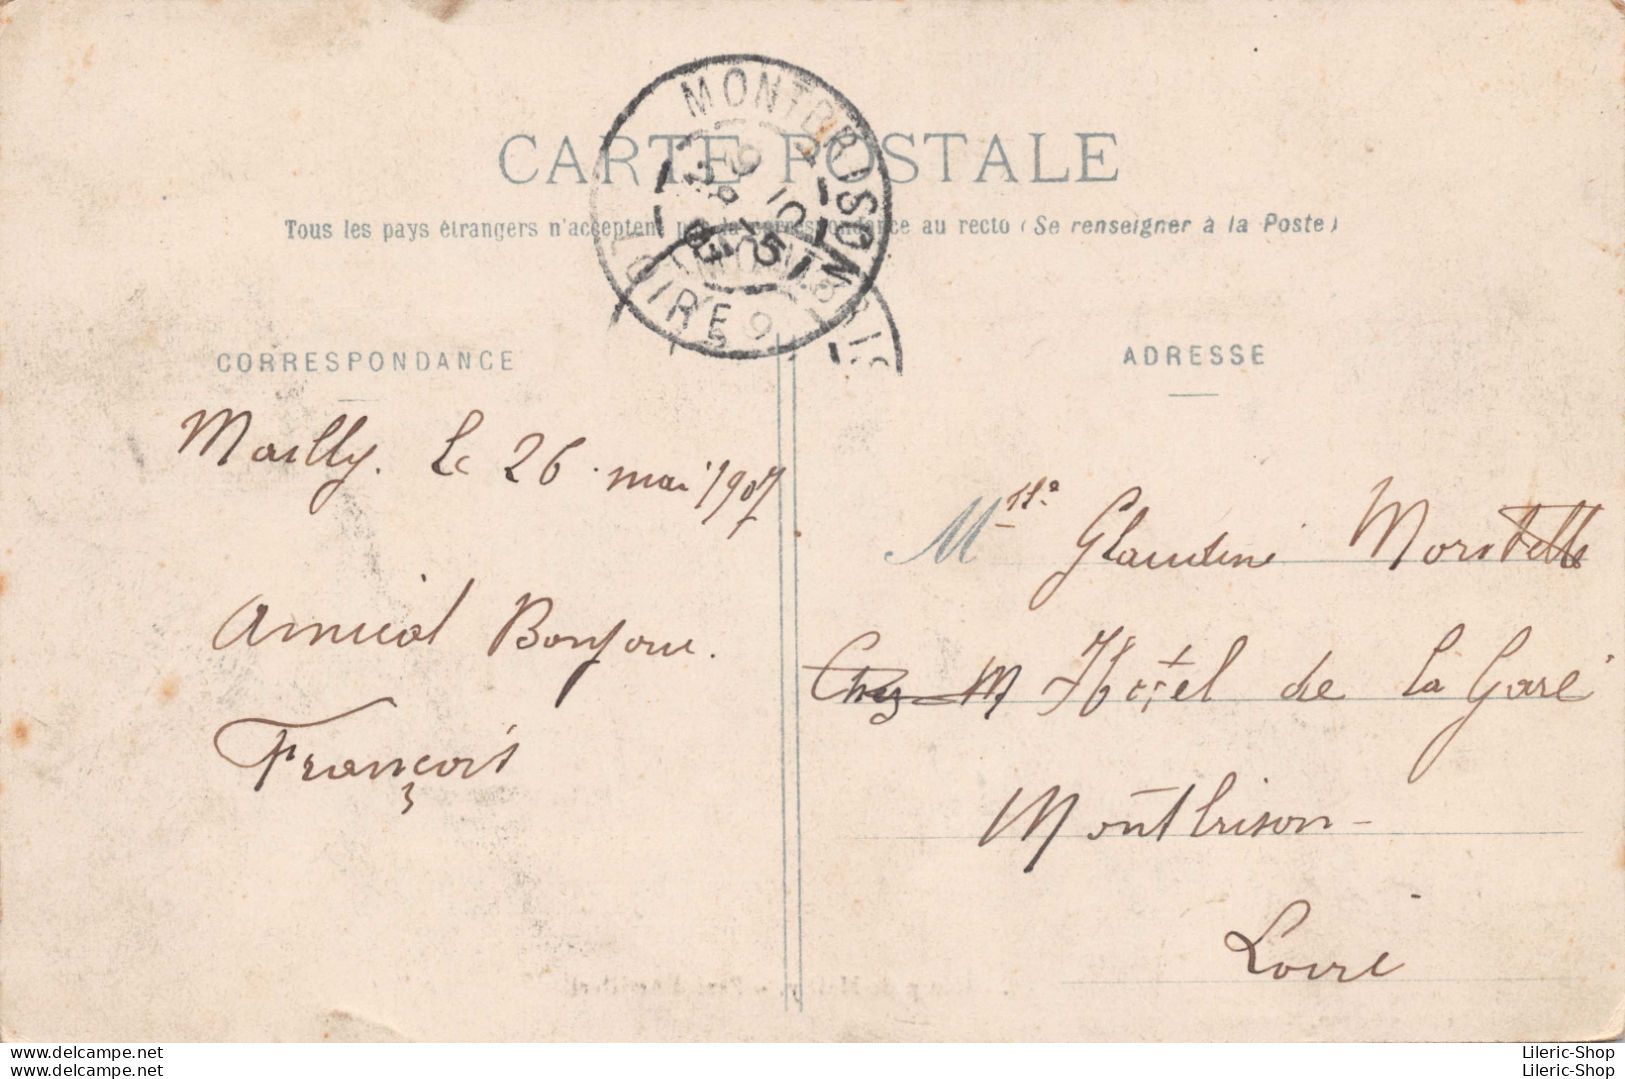 MONTBRISON
LOIRE
CARTE POSTALE
Tous les pays étrangers n'acceptent pas la correspondance au recto (Se renseigner à la Poste)
CORRESPONDANCE
Mailly. Le 26 mai 1907
Amical Bonjour.
François
ADRESSE
Mlle Glaudine
Chez M Hôtel de La Gare
Montbrison
Loire
www.delcampe.net
www.delcampe.net
Lileric-Shop
Lileric-Shop